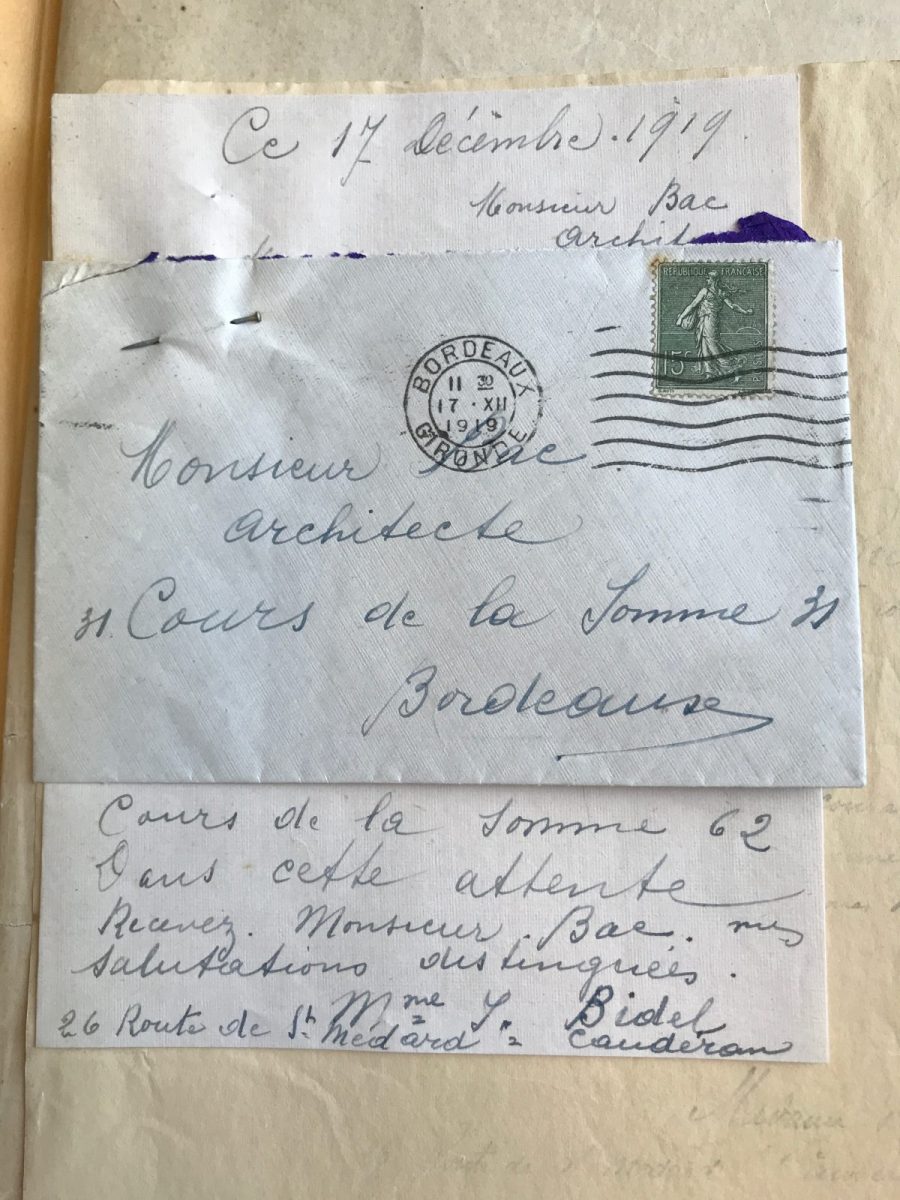 Ce 17 Décembre. 1919.
Monsieur Bac
archit
REPUBLIQUE FRANÇAISE
15c
BORDEAUX
11 30
17 · XII
1919
GIRONDE
Monsieur Bac
architecte
31. Cours de la Somme 31
Bordeaux
Cours de la Somme 62
Dans cette attente
Recevez. Monsieur. Bac. mes
Salutations distinguées.
Mme Y. Bidel
26 Route de St Médard = Caudéran